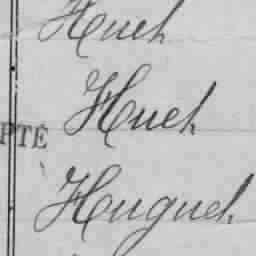 Huet
Huet
PTE
Huguet